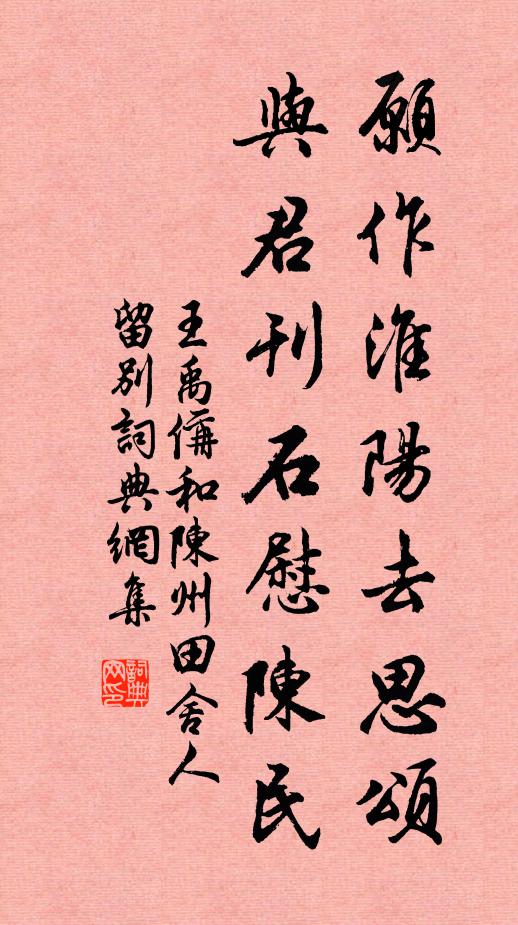 願作淮陽去思頌
與君刊石慰陳民
王禹偁和陳州田舍人
留別詞典網集
詞典网印